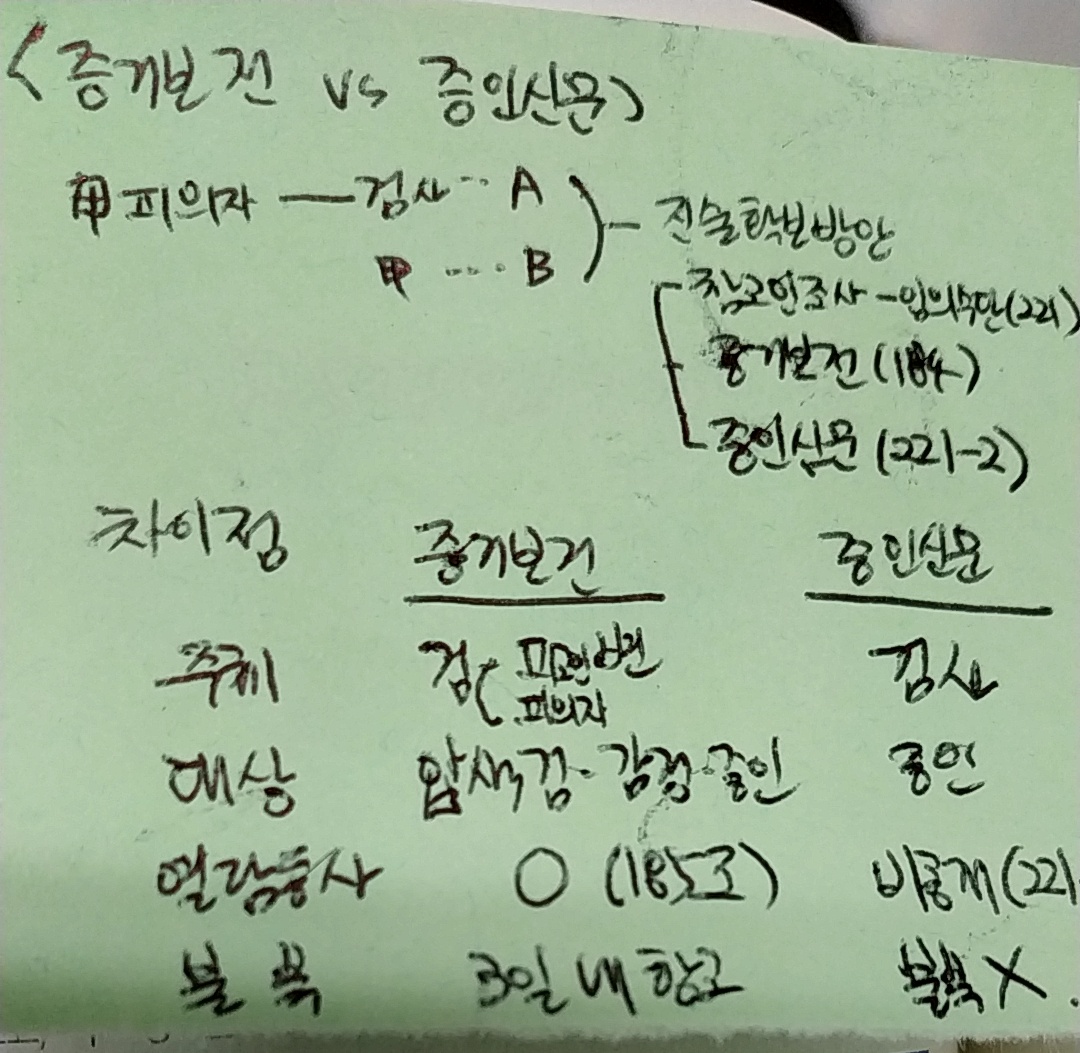 <증거보전 vs 증인신문>
甲피의자 — 검사 ·· A
甲 ···· B
진술확보방안
참고인조사 - 임의수단(221)
증거보전 (184)
증인신문 (221-2)
차이점 증거보전 증인신문
주체 검 피의자 검사
대상 압색검·감정·증인 증인
열람등사 O (185조) 비공개(221
불복 3일 내 항고 불복 X.